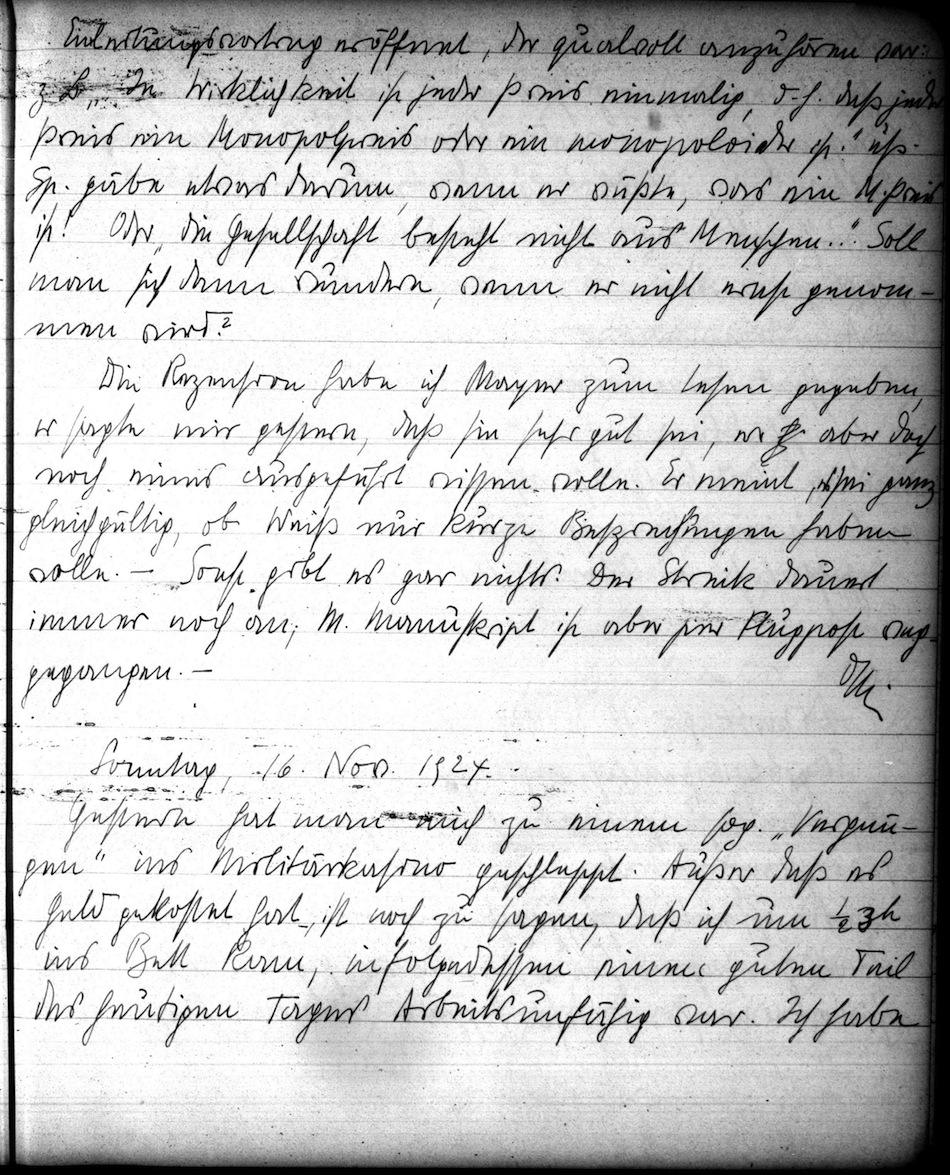 Einleitungsvortrag eröffnet, der qualvoll anzuhören war:
z B. „In Wirklichkeit ist jeder Preis einmalig, d.h. daß jeder
Preis ein Monopolpreis oder ein monopoloider ist."
Sp. gäbe etwas darum, wenn er wüßte, was ein M.preis
ist! Oder „die Gesellschaft besteht nicht aus Menschen..." Soll
man sich dann wundern, wenn er nicht ernst genom-
men wird?
Die Rezension habe ich Mayer zum Lesen gegeben,
er sagte mir gestern, daß sie sehr gut sei, er aber doch
noch eines ausgeführt wissen wolle. Er meint, es sei ganz
gleichgültig, ob Weiß nur kurze Besprechungen haben
wolle. – Sonst gibt es gar nichts. Der Streik dauert
immer noch an; M. Manuskript ist aber per Flugpost weg-
gegangen. –
Sonntag, 16. Nov. 1924.
Gestern hat man mich zu einem sog. „Vergnü-
gen" ins Militärkasino geschleppt. Außer daß es
Geld gekostet hat, ist noch zu sagen, daß ich um ½3h
ins Bett kam, infolgedessen einen guten Teil
des heutigen Tages Arbeitsunfähig war. Ich habe